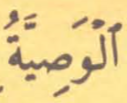 ٱلْوَصِيَّةُ